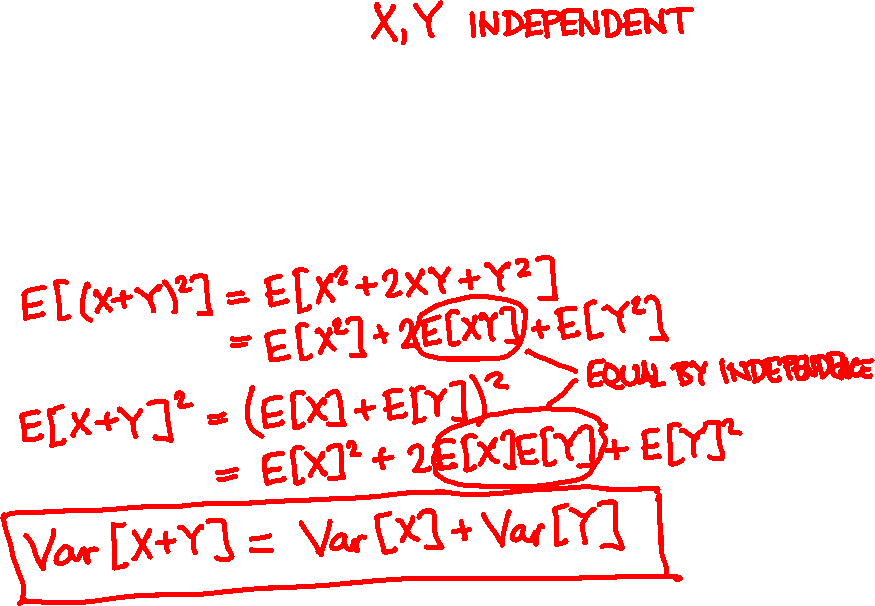 X, Y INDEPENDENT
E[(X+Y)²] = E[X²+2XY+Y²]
= E[X²] + 2E[XY] + E[Y²]
EQUAL BY INDEPENDENCE
E[X+Y]² = (E[X]+E[Y])²
= E[X]² + 2E[X]E[Y] + E[Y]²
Var[X+Y] = Var[X] + Var[Y]